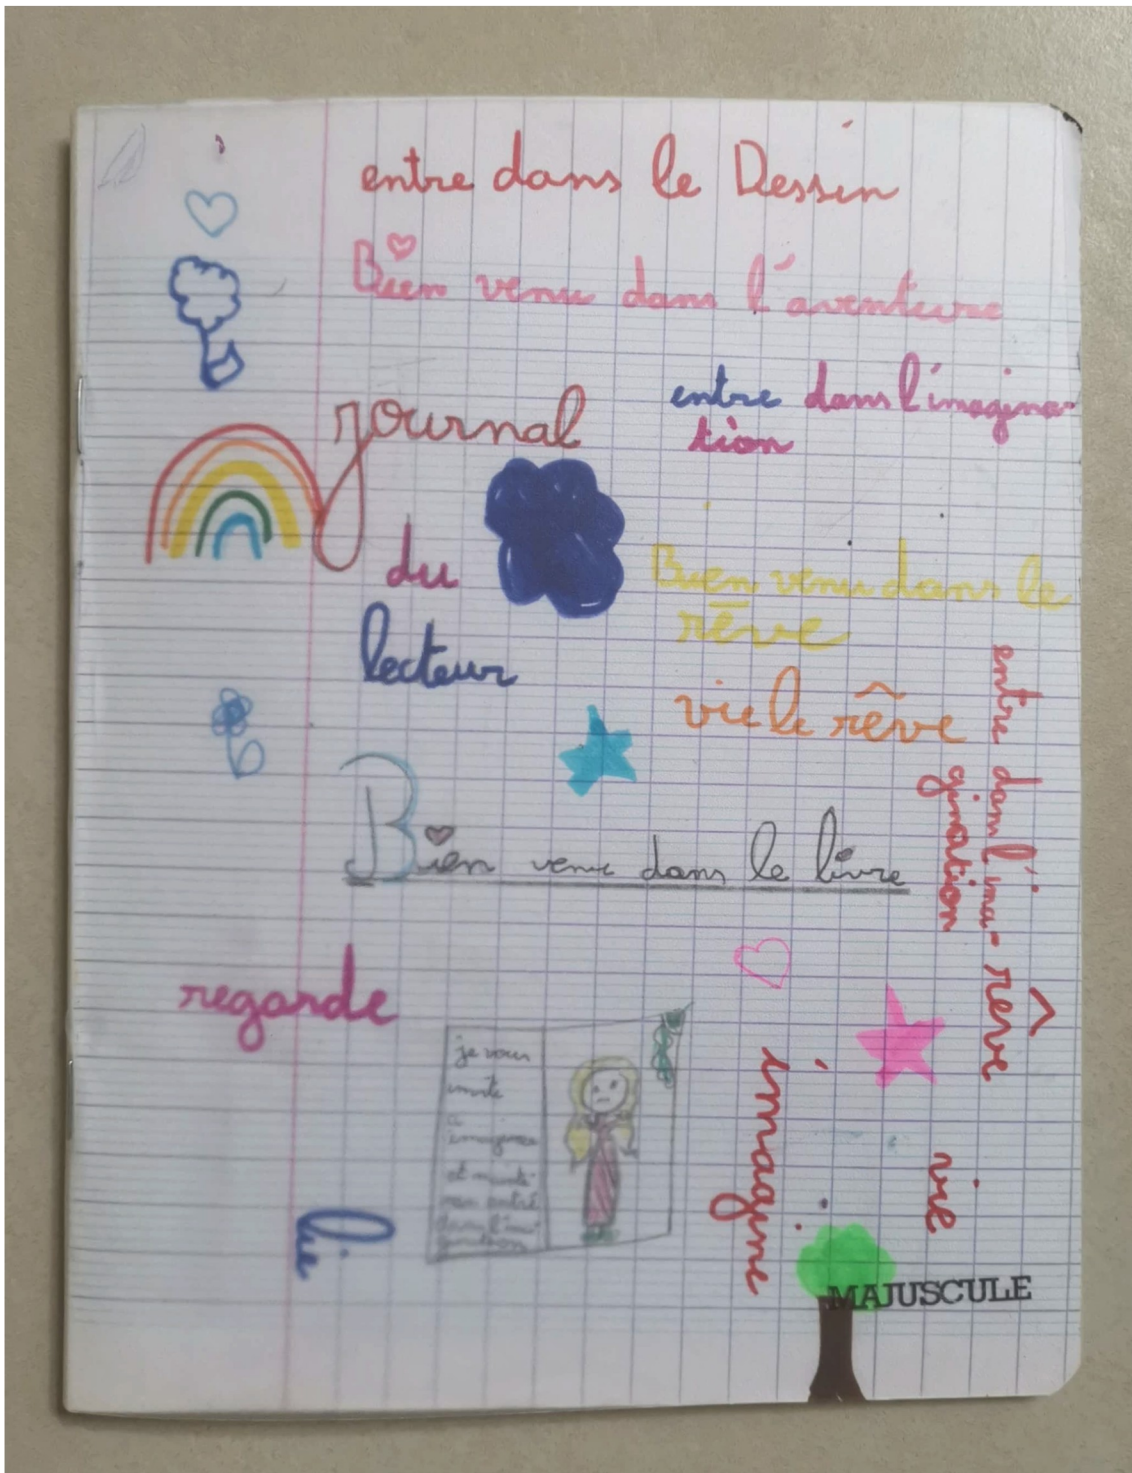 entre dans le Dessin
Bien venu dans l'aventure
entre dans l'imagina-
tion
journal
du
lecteur
Bien venu dans le
rêve
vie le rêve
entre dans l'ima-
gination
Bien venu dans le livre
rêve
regarde
je vous
invite
a
imaginer
et mainte-
nan entré
dans l'ima-
gination
imagine
vie
lie
MAJUSCULE